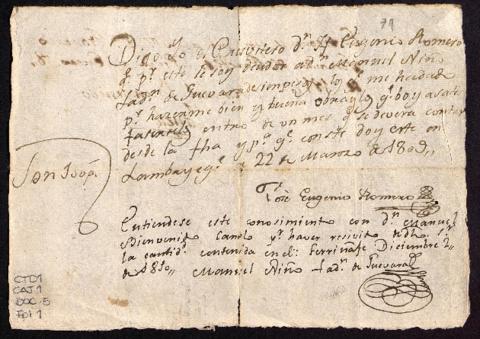 79
Digo yo el Presvitero Dn. José Eugenio Romero
qe. pr. este le soy deudor a dn. Manuel Niño
Ladn. de Guevara de cien pesos los qe. me ha de
pr. hazerme bien y buena obra, y lo qe. boy a satis
facerle entro de un mes qe. se devera contar
desde la fha y pa. qe. conste doy este en
Lambayeqe. a 22 de Marzo de 1809,,
Son 100 ps.
José Eugenio Romero
Entiendese este conosimiento con dn. Manuel
Bienvenido Cano y haver resivido
la cantidd. contenida en el: Ferriñafe Diciembre 2,,
de 1810,, Manuel Niño Ladn. de Guevara
CTD1
CAJ 1
DOC. 5
Fol 1